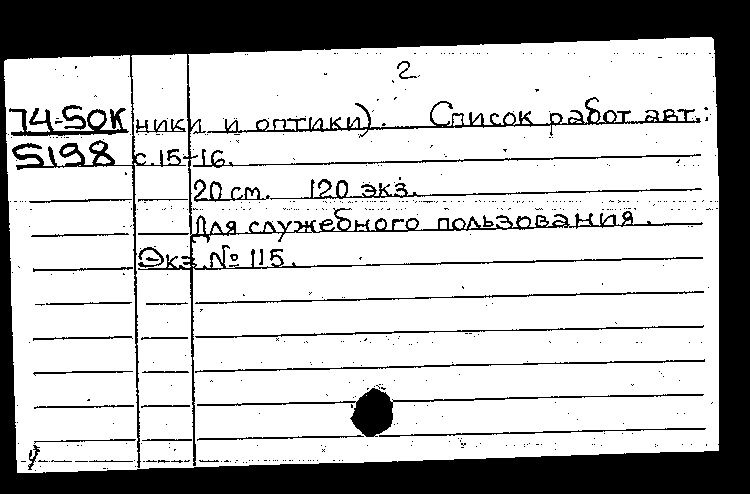 2
74-50к ники и оптики). Список работ авт.:
5198 с.15-16.
20 см. 120 экз.
Для служебного пользования.
Экз.№ 115.